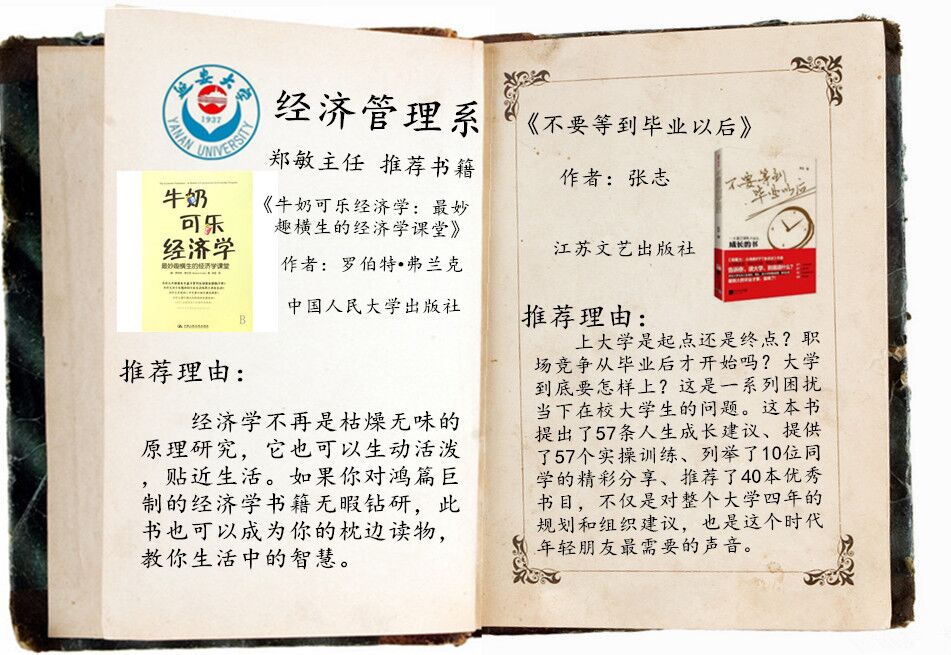 延安大学
1937
YANAN UNIVERSITY
经济管理系
郑敏主任 推荐书籍
牛奶
可乐
经济学
最妙趣横生的经济学课堂
B
《牛奶可乐经济学：最妙
趣横生的经济学课堂》
作者：罗伯特•弗兰克
中国人民大学出版社
推荐理由：
经济学不再是枯燥无味的
原理研究，它也可以生动活泼
，贴近生活。如果你对鸿篇巨
制的经济学书籍无暇钻研，此
书也可以成为你的枕边读物，
教你生活中的智慧。
《不要等到毕业以后》
作者：张志
江苏文艺出版社
不要等到
毕业以后
成长的书
推荐理由：
上大学是起点还是终点？职
场竞争从毕业后才开始吗？大学
到底要怎样上？这是一系列困扰
当下在校大学生的问题。这本书
提出了57条人生成长建议、提供
了57个实操训练、列举了10位同
学的精彩分享、推荐了40本优秀
书目，不仅是对整个大学四年的
规划和组织建议，也是这个时代
年轻朋友最需要的声音。